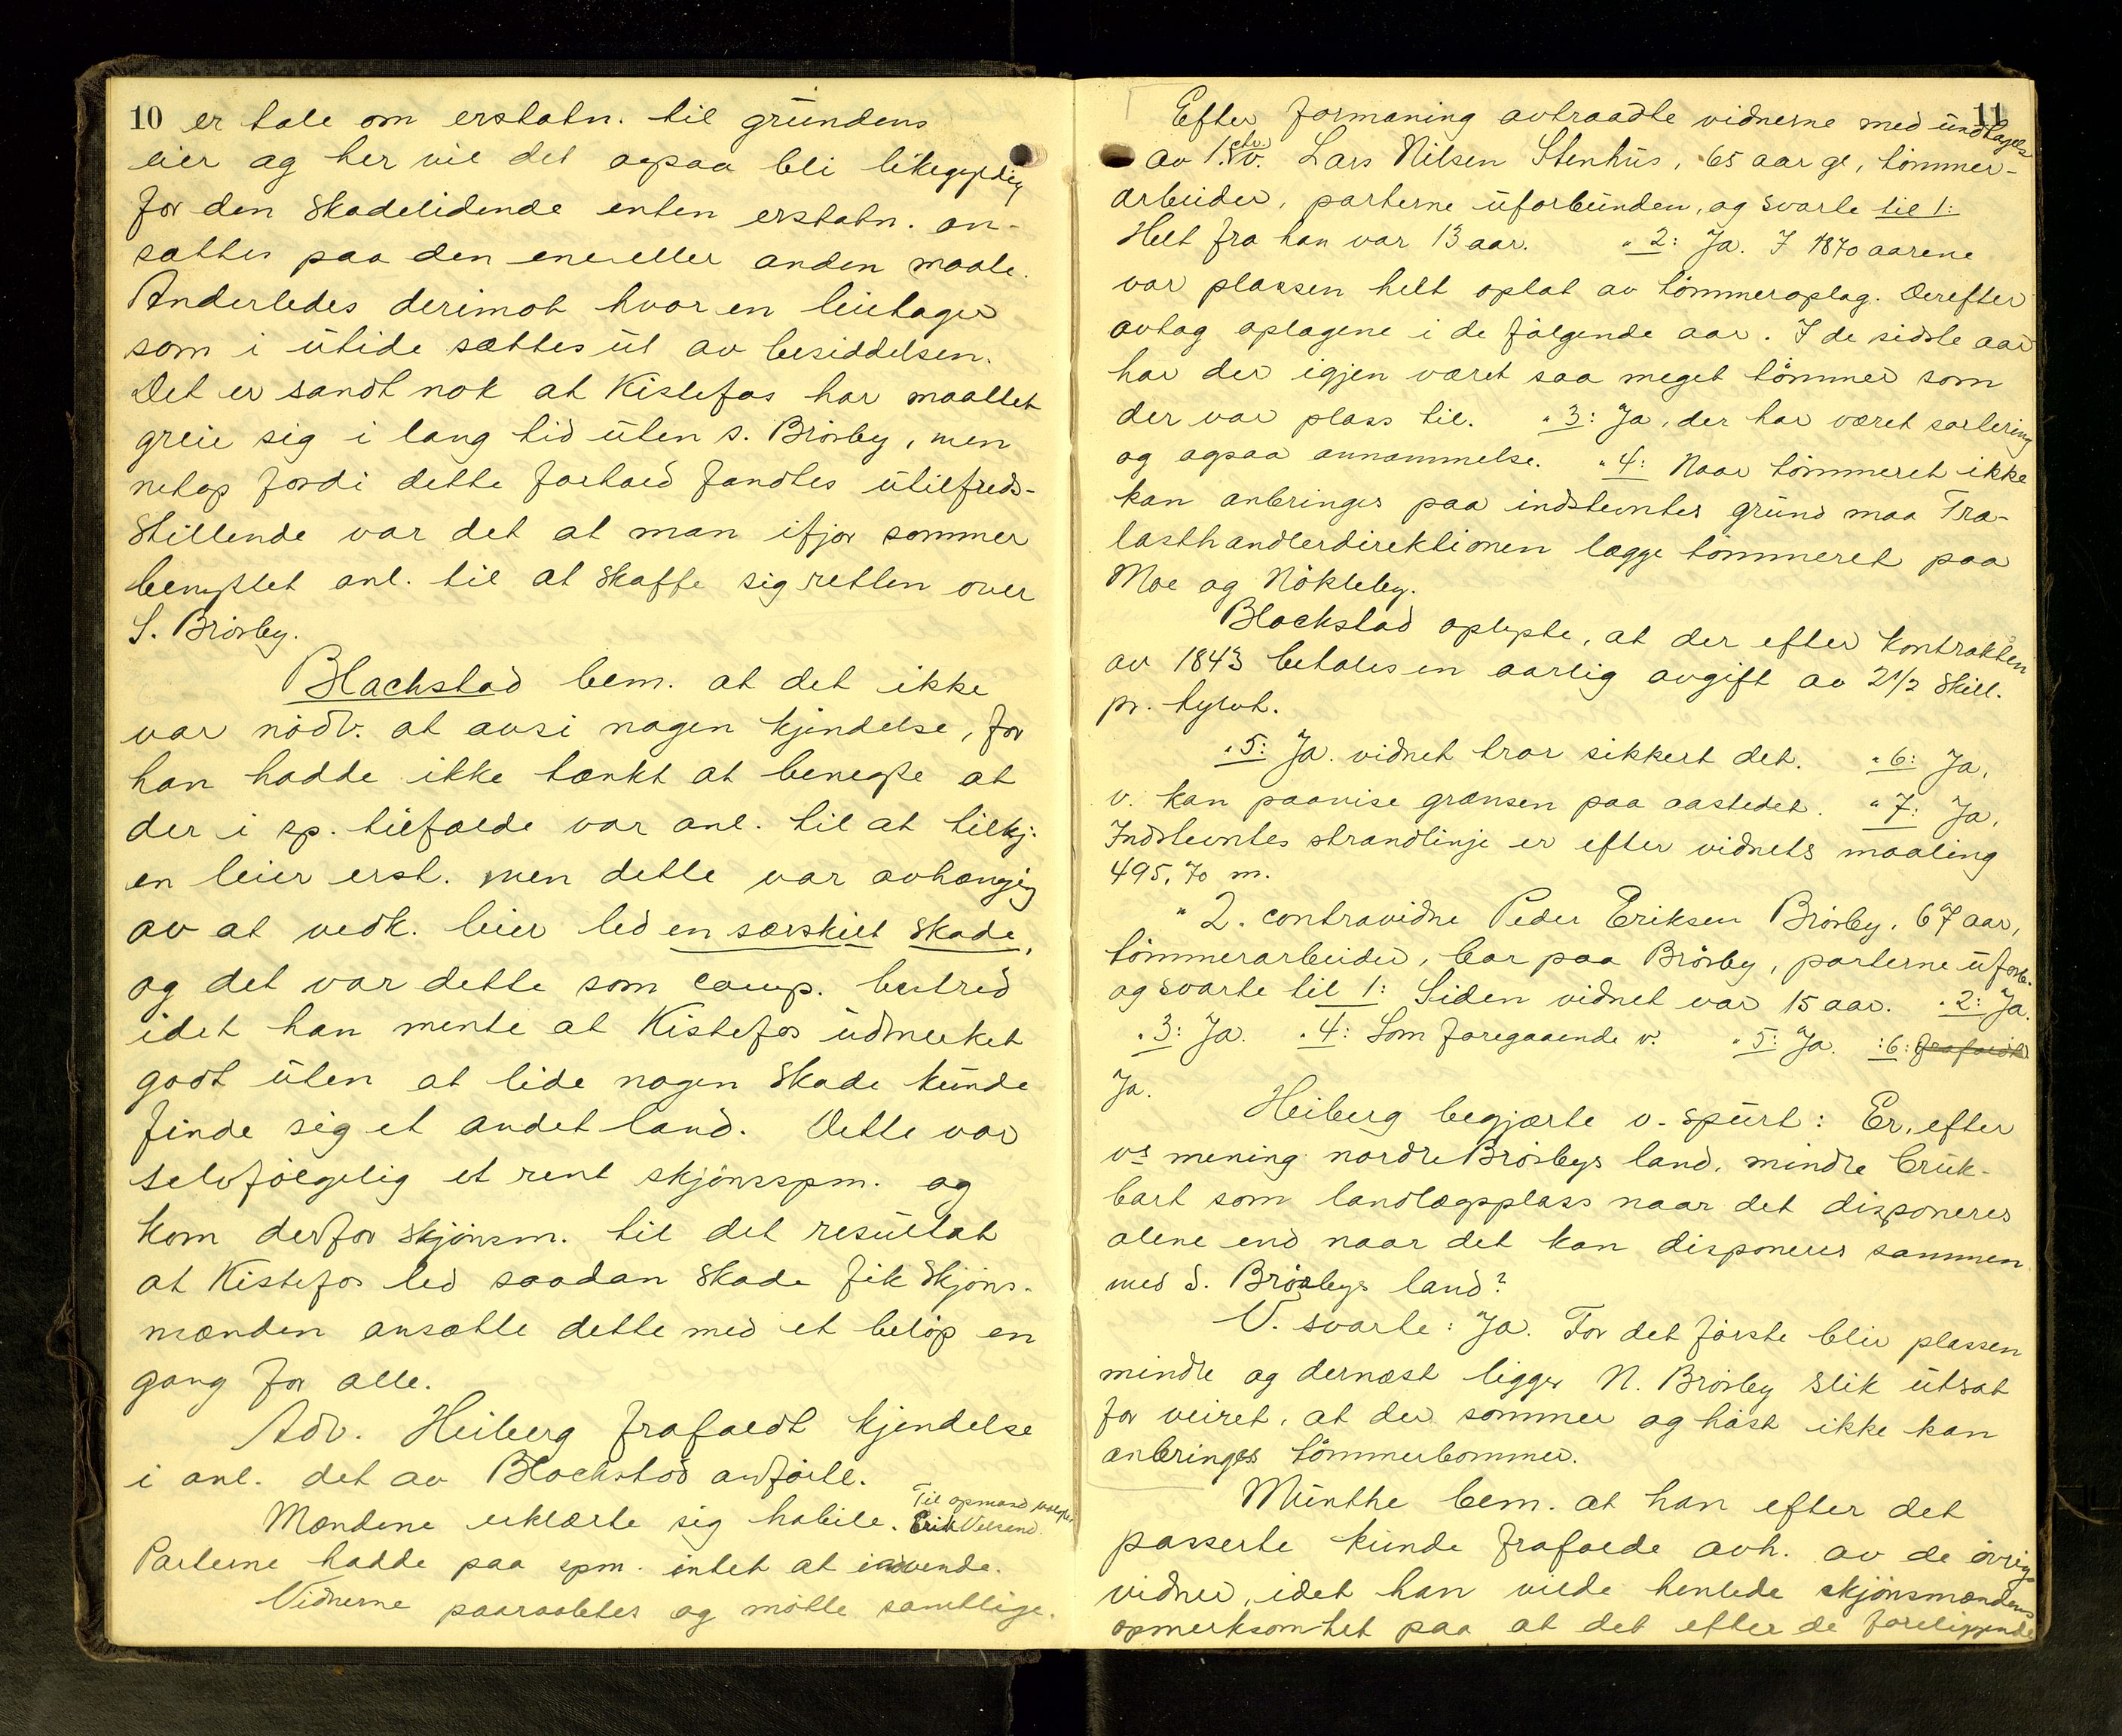 10 er tale om erstatn. til grundens
eier og her vil det ogsaa bli likegyldig
for den skadelidende enten erstatn. an-
sættes paa den ene eller anden maate.
Anderledes derimot hvor en leietager
som i utide sættes ut av besiddelsen.
Det er sandt nok at Kistefos har maattet
greie sig i lang tid uten s. Brørby, men
netop fordi dette forhold fandtes utilfreds-
stillende var det at man ifjor sommer
benyttet anl. til at skaffe sig retten over
S. Brørby.
Blackstad bem. at det ikke
var nødv. at avsi nogen kjendelse, for
han hadde ikke tænkt at benegte at
der i sp. tilfælde var anl. til at tilkj.
en leier erst. men dette var avhængig
av at vedk. leier led en særskilt skade,
og det var dette som comp. bestred
idet han mente at Kistefos udmerket
godt uten at lide nogen skade kunde
finde sig et andet land. Dette var
selvfølgelig et rent skjønsspm. og
kom derfor skjønsm. til det resultat
at Kistefos led saadan skade fik skjøns-
mænden ansætte dette med et beløp en
gang for alle.
Adv. Heiberg frafaldt kjendelse
i anl. det av Blackstad anførte.
Mændene erklærte sig habile. Til opmand valgtes
Erik Velsand.
Parterne hadde paa spm. intet at indvende.
Vidnerne paaroptes og møtte samtlige.
11
Efter formaning avtraadte vidnerne med undtagelse
av 1. ctr. v. Lars Nilsen Stenhus, 65 aar gl, tømmer-
arbeider, parterne uforbunden, og svarte til 1:
Helt fra han var 13 aar. " 2: Ja. I 1870 aarene
var plassen helt optat av tømmeroplag. Derefter
avtog oplagene i de følgende aar. I de sidste aar
har der igjen været saa meget tømmer som
der var plass til. " 3: Ja, der har været sortering
og ogsaa annammelse. " 4: Naar tømmeret ikke
kan anbringes paa indstevntes grund maa Tra-
lasthandlerdirektionen lægge tømmeret paa
Moe og Nøkleby.
Blackstad oplyste, at der efter kontrakten
av 1843 betales en aarlig avgift av 2 1/2 skill.
pr. tylvt.
" 5: Ja. vidnet tror sikkert det. " 6: Ja,
v. kan paavise grænsen paa aastedet. " 7: Ja,
Indstevntes strandlinje er efter vidnets maaling
495,70 m.
" 2. contravidne Peder Eriksen Brørby, 67 aar,
tømmerarbeider, bor paa Brørby, parterne uforb.
og svarte til 1: Siden vidnet var 15 aar. " 2: Ja.
" 3: Ja. " 4: Som foregaaende v. " 5: Ja. " 6: frafaldt
Ja.
Heiberg begjærte v. spurt: Er, efter
vs mening nordre Brørbys land, mindre bruk-
bart som landlægsplass naar det disponeres
alene end naar det kan disponeres sammen
med S. Brørbys land?
V. svarte: Ja. For det første blir plassen
mindre og dernæst ligger N. Brørby slik utsat
for veiret, at der sommer og høst ikke kan
anbringes tømmerbommer.
Munthe bem. at han efter det
passerte kunde frafalde avh. av de øvrige
vidner, idet han vilde henlede skjønsmændens
opmerksomhet paa at det efter de foreliggende